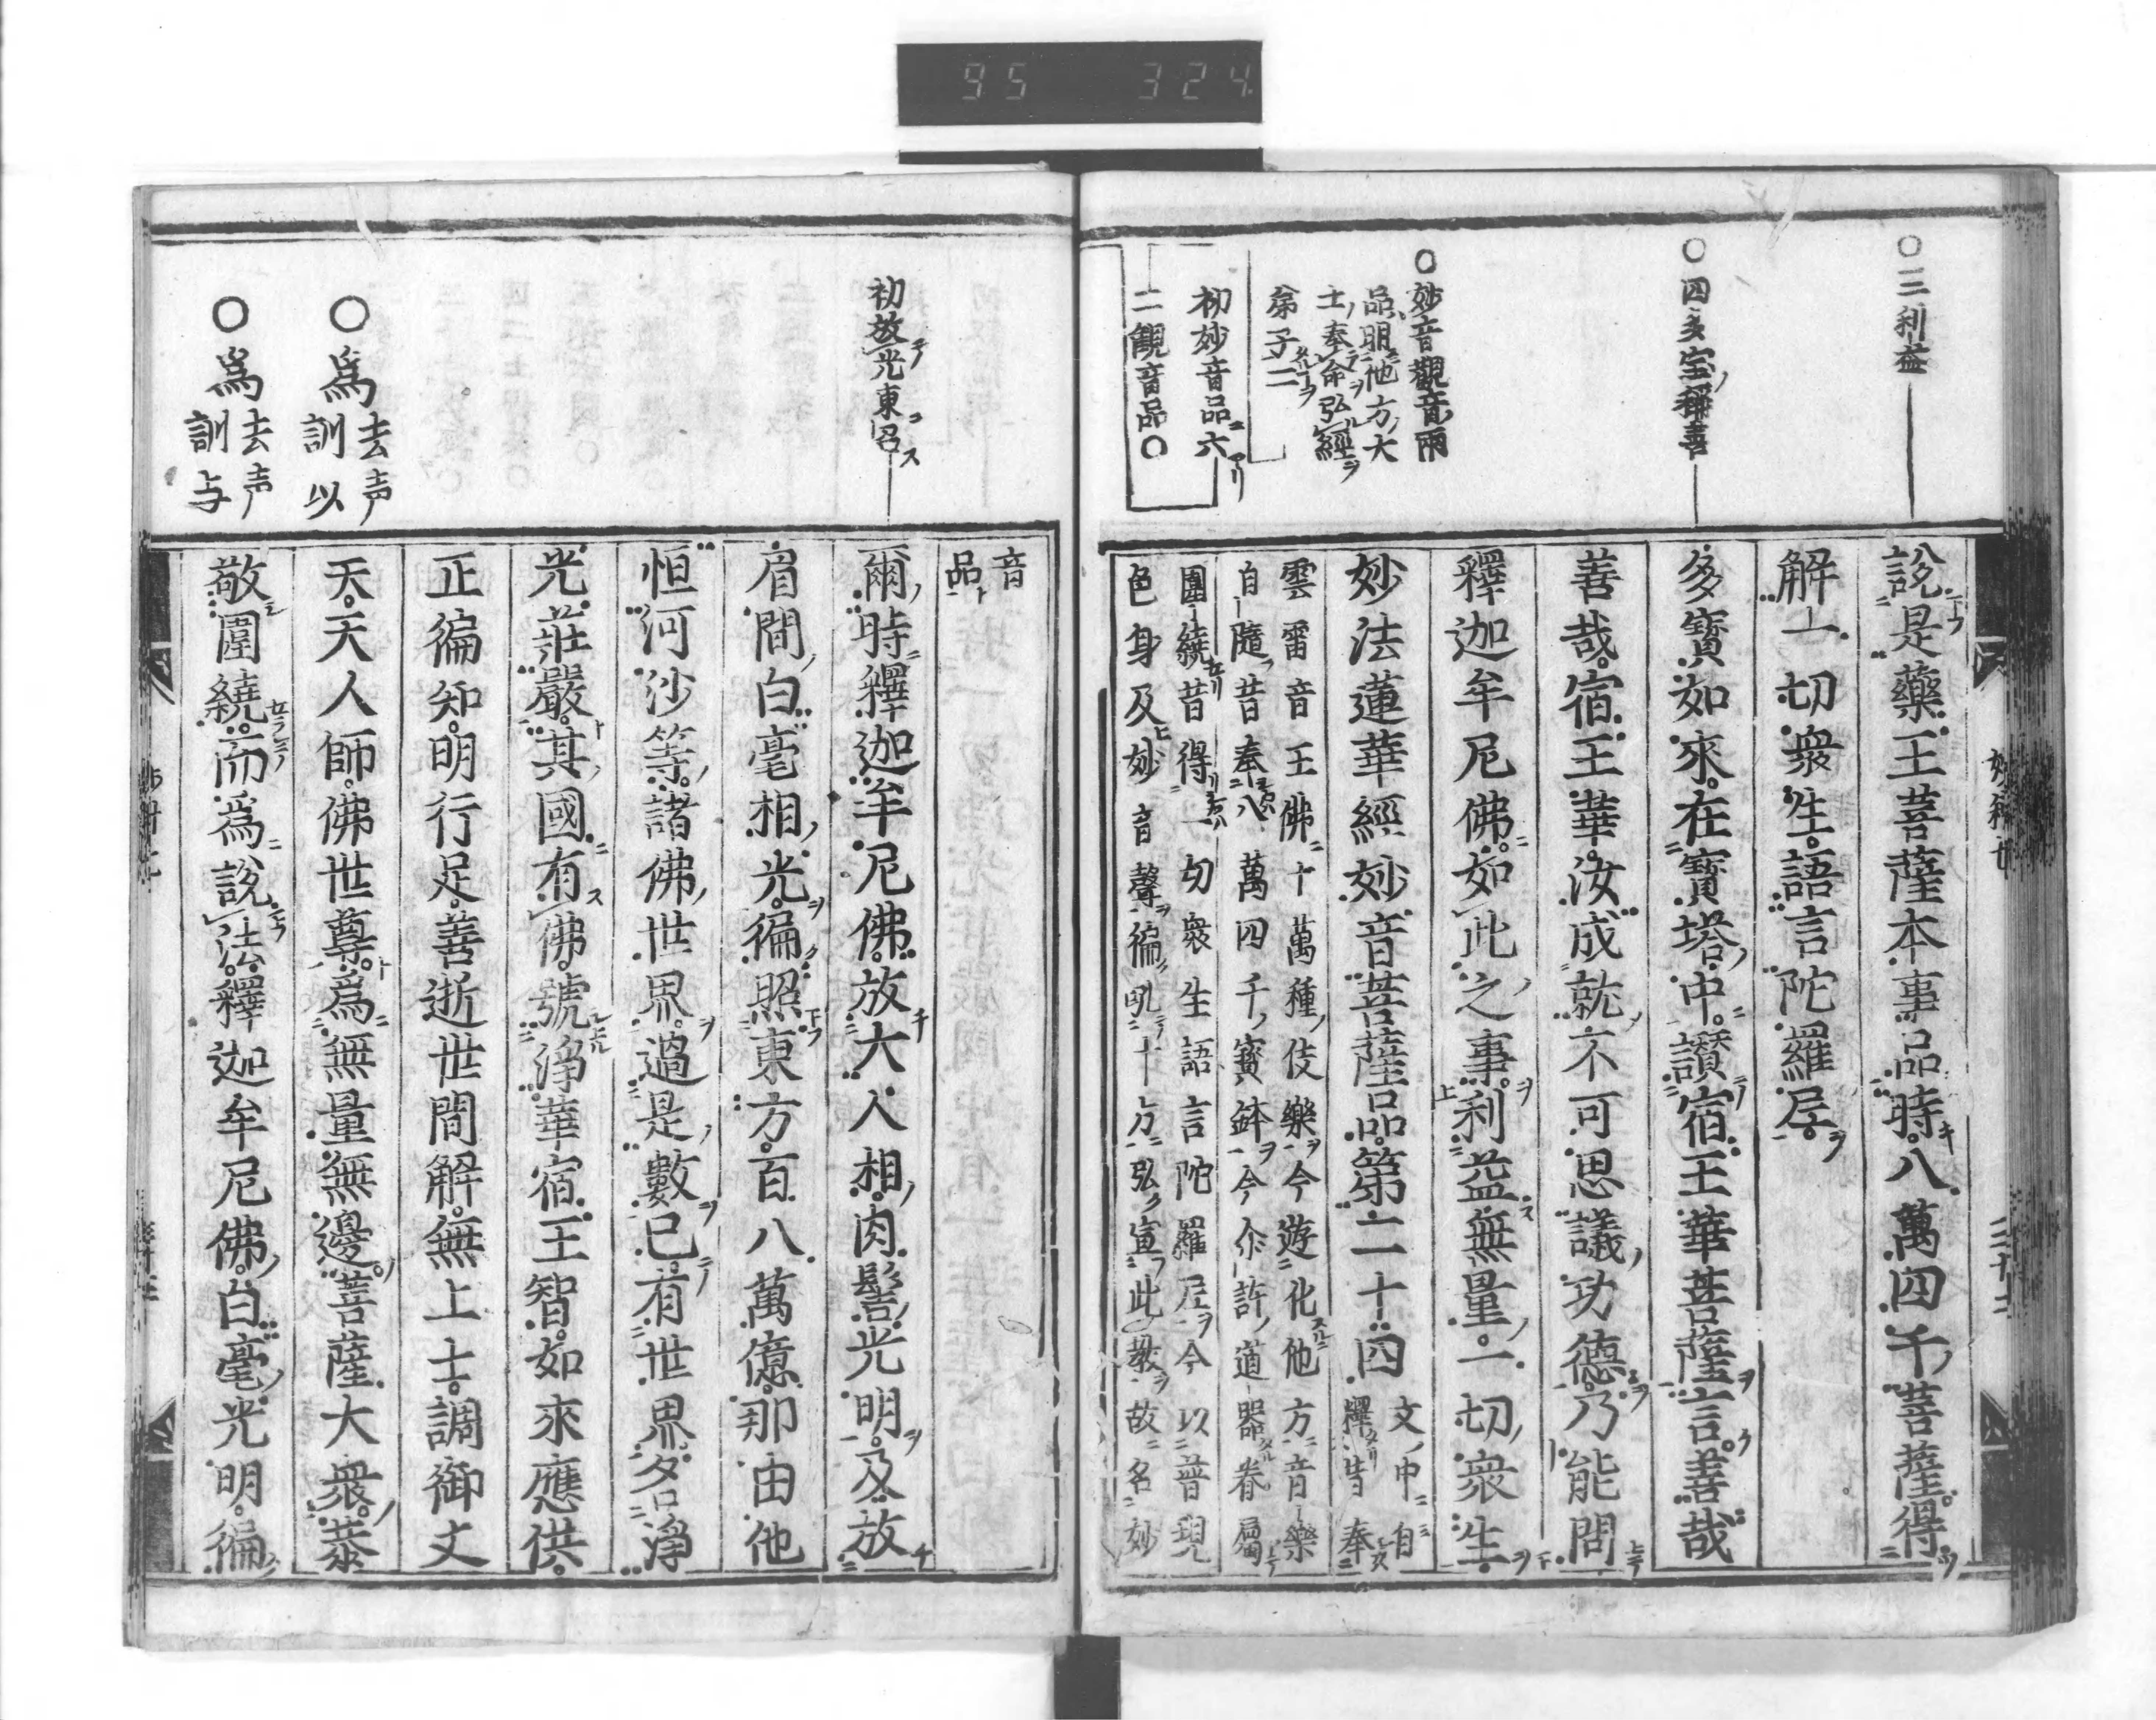 95 324
○三利益
說是藥王菩薩本事品時八萬四千菩薩得
解一切衆生語言陀羅尼
○四多宝稱善
多寶如來在寶塔中讚宿王華菩薩言善哉
善哉宿王華汝成就不可思議功德乃能問
釋迦牟尼佛如此之事利益無量一切衆生
○妙音觀音兩
品明他方大
士奉命弘經
弟子二
初妙音品六
二觀音品○
妙法蓮華經妙音菩薩品第二十四
文中自
釋昔奉
雲雷音王佛十萬種伎樂今遊化他方音樂
自隨昔奉八萬四千寶鉢今尒許道器眷屬
圍繞昔得一切衆生語言陀羅尼今以普現
色身及妙音聲徧吼十方弘宣此教故名妙
音
品
初放光東召
爾時釋迦牟尼佛放大人相肉髻光明及放
眉間白毫相光徧照東方百八萬億那由他
恒河沙等諸佛世界過是數已有世界名淨
光莊嚴其國有佛號淨華宿王智如來應供
正徧知明行足善逝世間解無上士調御丈
○爲去声訓以
天天人師佛世尊爲無量無邊菩薩大衆恭
○爲去声訓与
敬圍繞而爲說法釋迦牟尼佛白毫光明徧